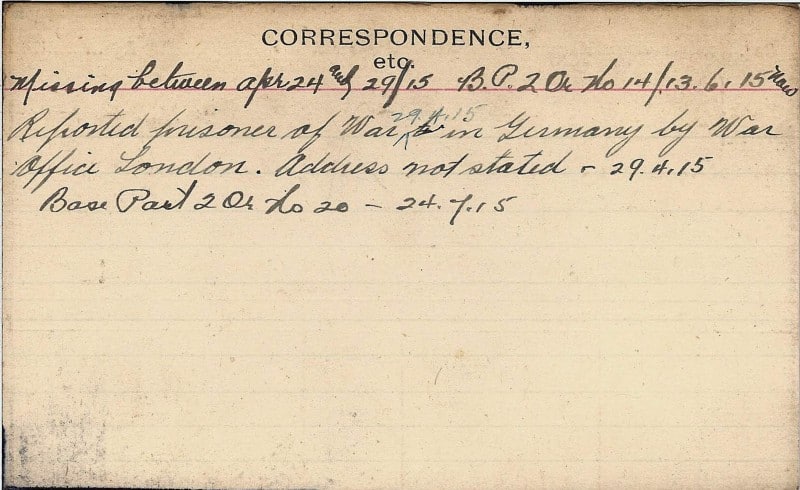 CORRESPONDENCE,
etc.
Missing between Apr 24 and 29/15 B.P. 2 Or No 14/13.6.15 Now
29.4.15
Reported prisoner of War in Germany by War
Office London. Address not stated - 29.4.15
Base Part 2 Or No 20 - 24.7.15